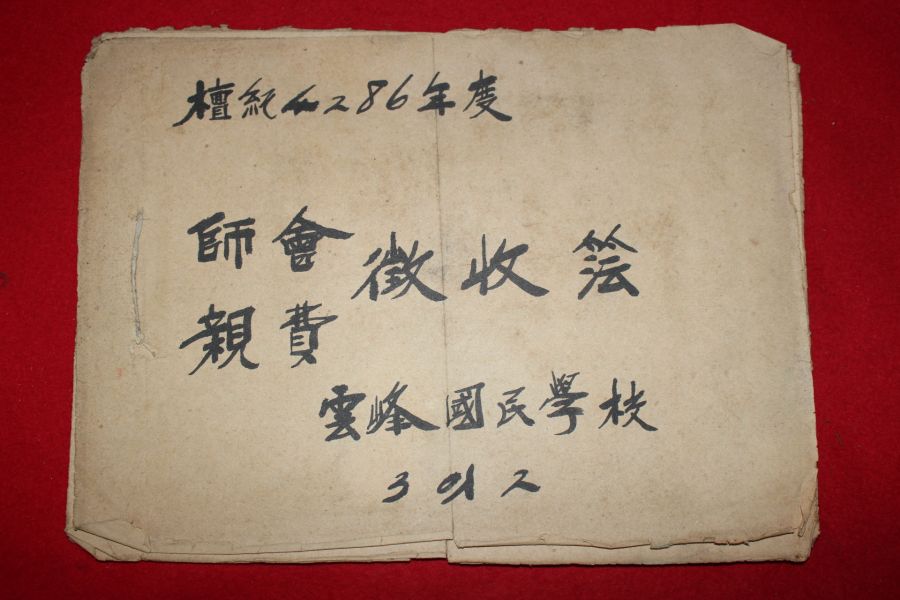 檀紀4286年度
師親會費徵收簿
雲峰國民學校
3 의 2